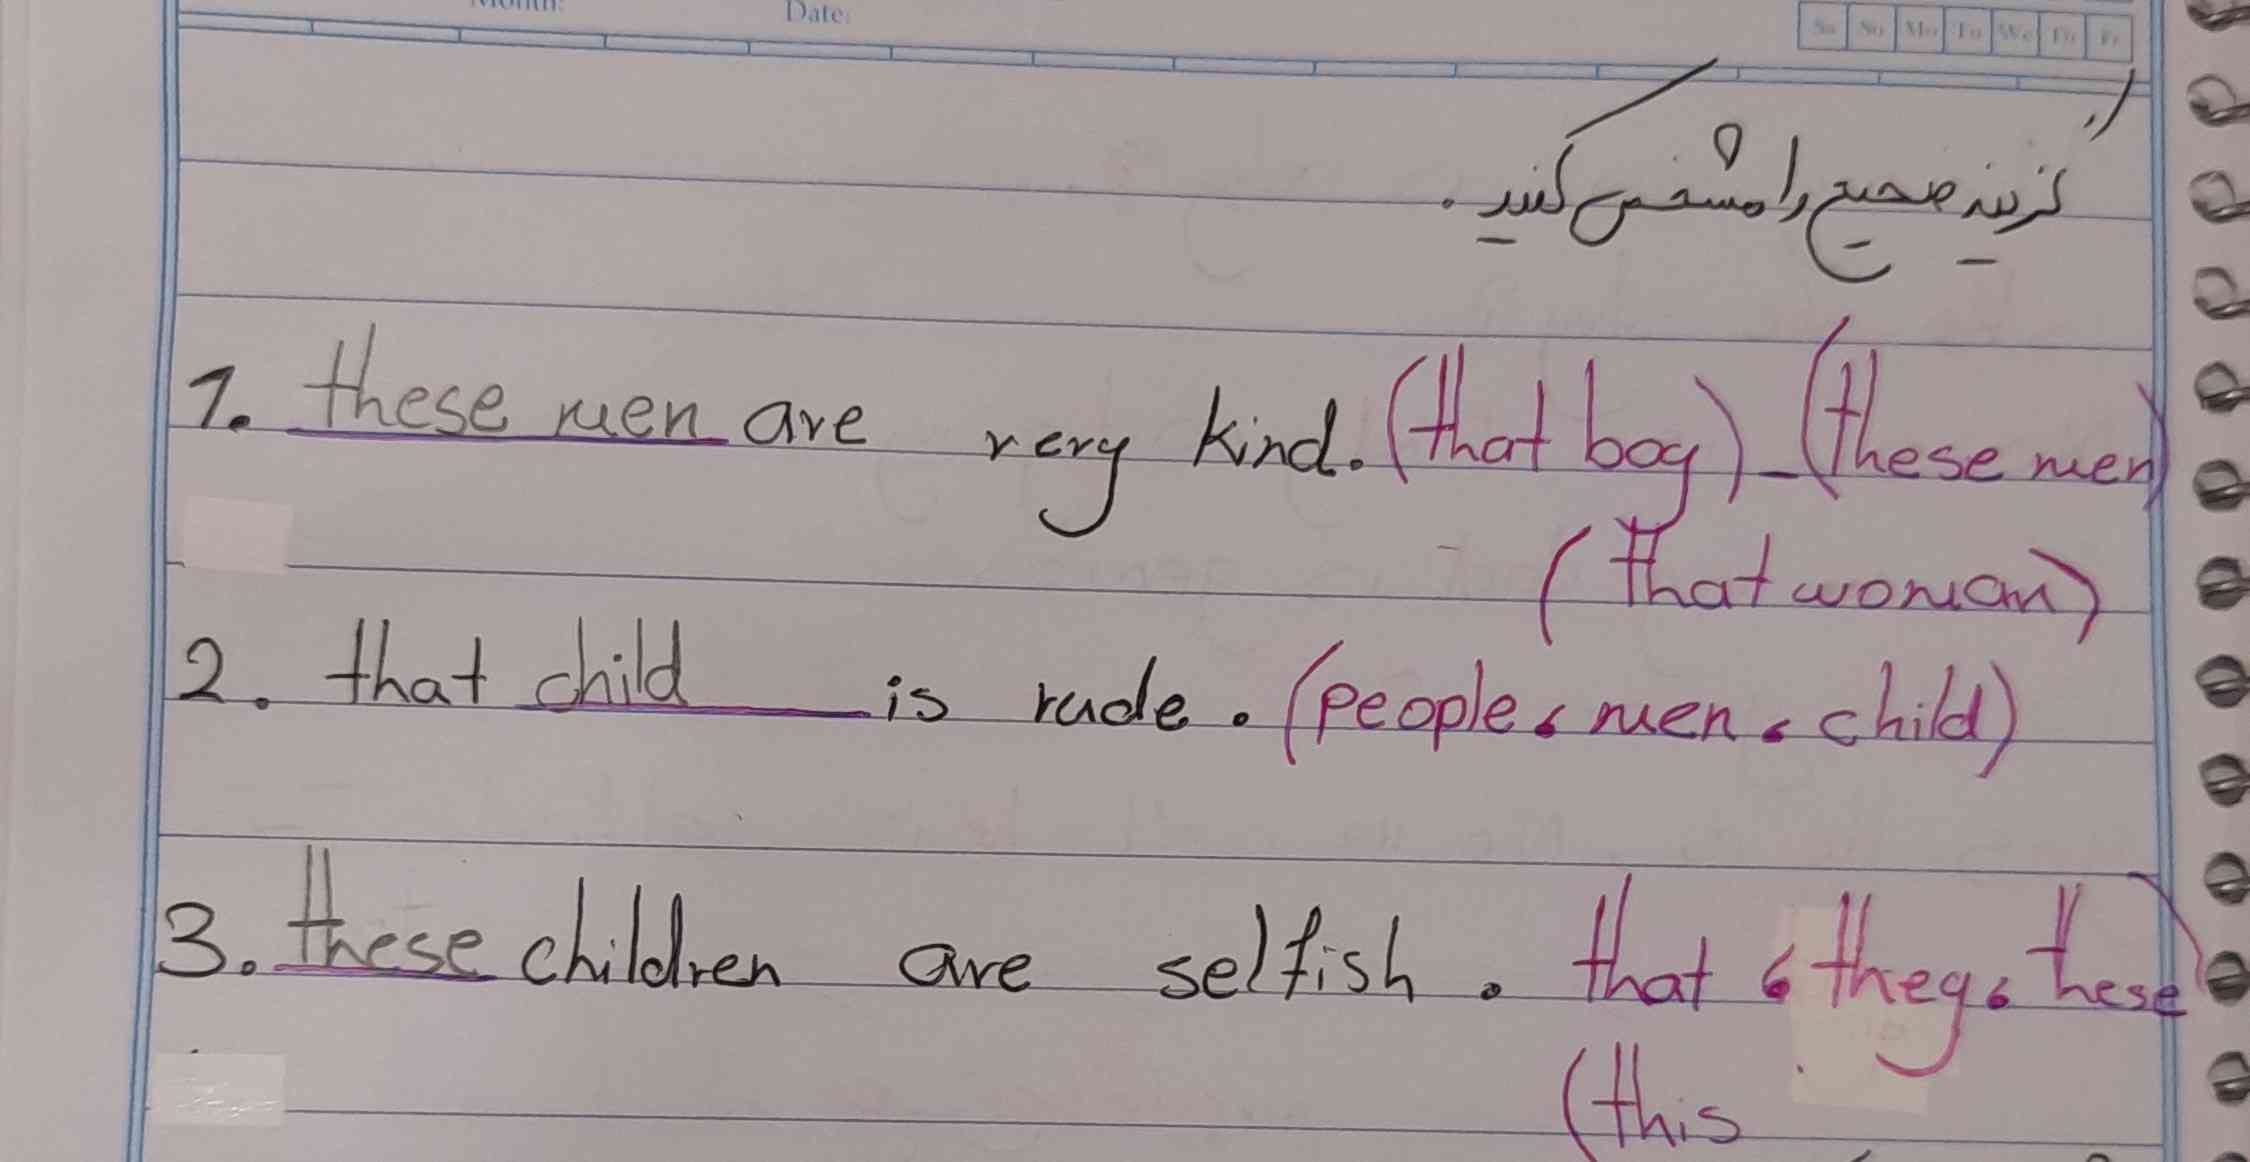 Month: Date:
Sa Su Mo Tu We Th Fr
گزینه صحیح را مشخص کنید.
1. these men are very kind. (that boy) - (these men)
(that woman)
2. that child is rude. (people، men، child)
3. these children are selfish. that ، they، these)
(this